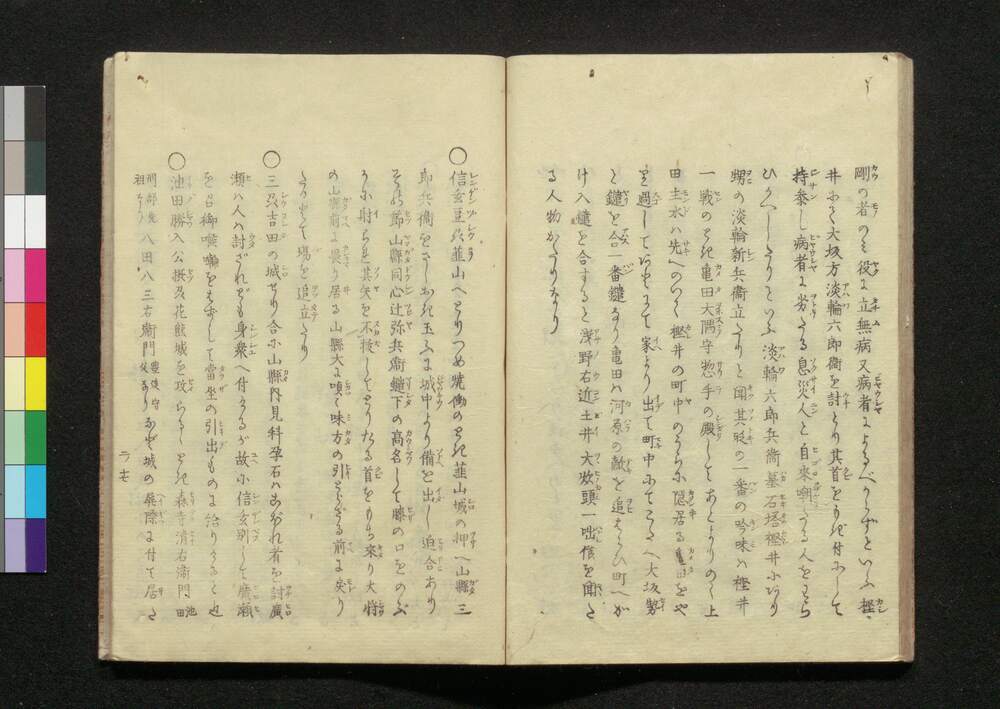 剛の者のミ役に立無病又病者によるべからずといふ樫
井にて大坂方淡輪六郎兵衞を討とり其首をもち付にして
持参し病者に劣たる息災人と自来嘲たる人をわら
ひかへしたりといふ淡輪六郎兵衞墓石塔樫井にあり
甥の淡輪新兵衞立たりと聞其時の一番の吟味ハ樫井
一戦のとき亀田大隅守惣手の殿してあとよりのく上
田主水ハ先へのく樫井の町中のうらに隠居る亀田をや
り過してあとにて家より出て町中にてこたへ大坂勢
と鑓を合一番鑓なり亀田ハ河原の敵を追はらひ町へか
け入鑓を合するを浅野右近土井大炊頭一咄候を聞た
る人物がたりなり
〇信玄豆州韮山へとりつめ焼働のとき韮山城の押へ山縣三
郎兵衞をさしおき玉ふに城中より備を出し迫合あり
その節山縣同心辻弥兵衞鑓下の高名して膝の口をのぶ
かに射られ其矢を不抜してとりたる首をもち来り大将
の山縣前に畏り居る山縣大に嗔て味方の引とらざる前に戻り
たるかとて場を追立たり
〇三州吉田の城せり合に山縣内見科孕石ハあがれ者を討廣
瀬ハ人ハ討ざれども身衆へ付たるが故に信玄別して廣瀬
を召御嘆嘶をも歩して當坐の引出ものは給りたると也
〇池田勝入公摂州花飯城を攻らるゝとき森寺清右衞門池田
祖なり 八田八三右衞門豊後守父なりなど城の塀際に付て居た
ラ七